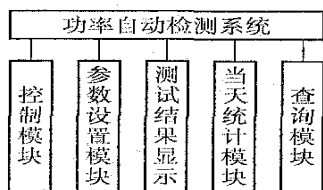 功率自动检测系统
控制模块
参数设置模块
测试结果显示
当天统计模块
查询模块